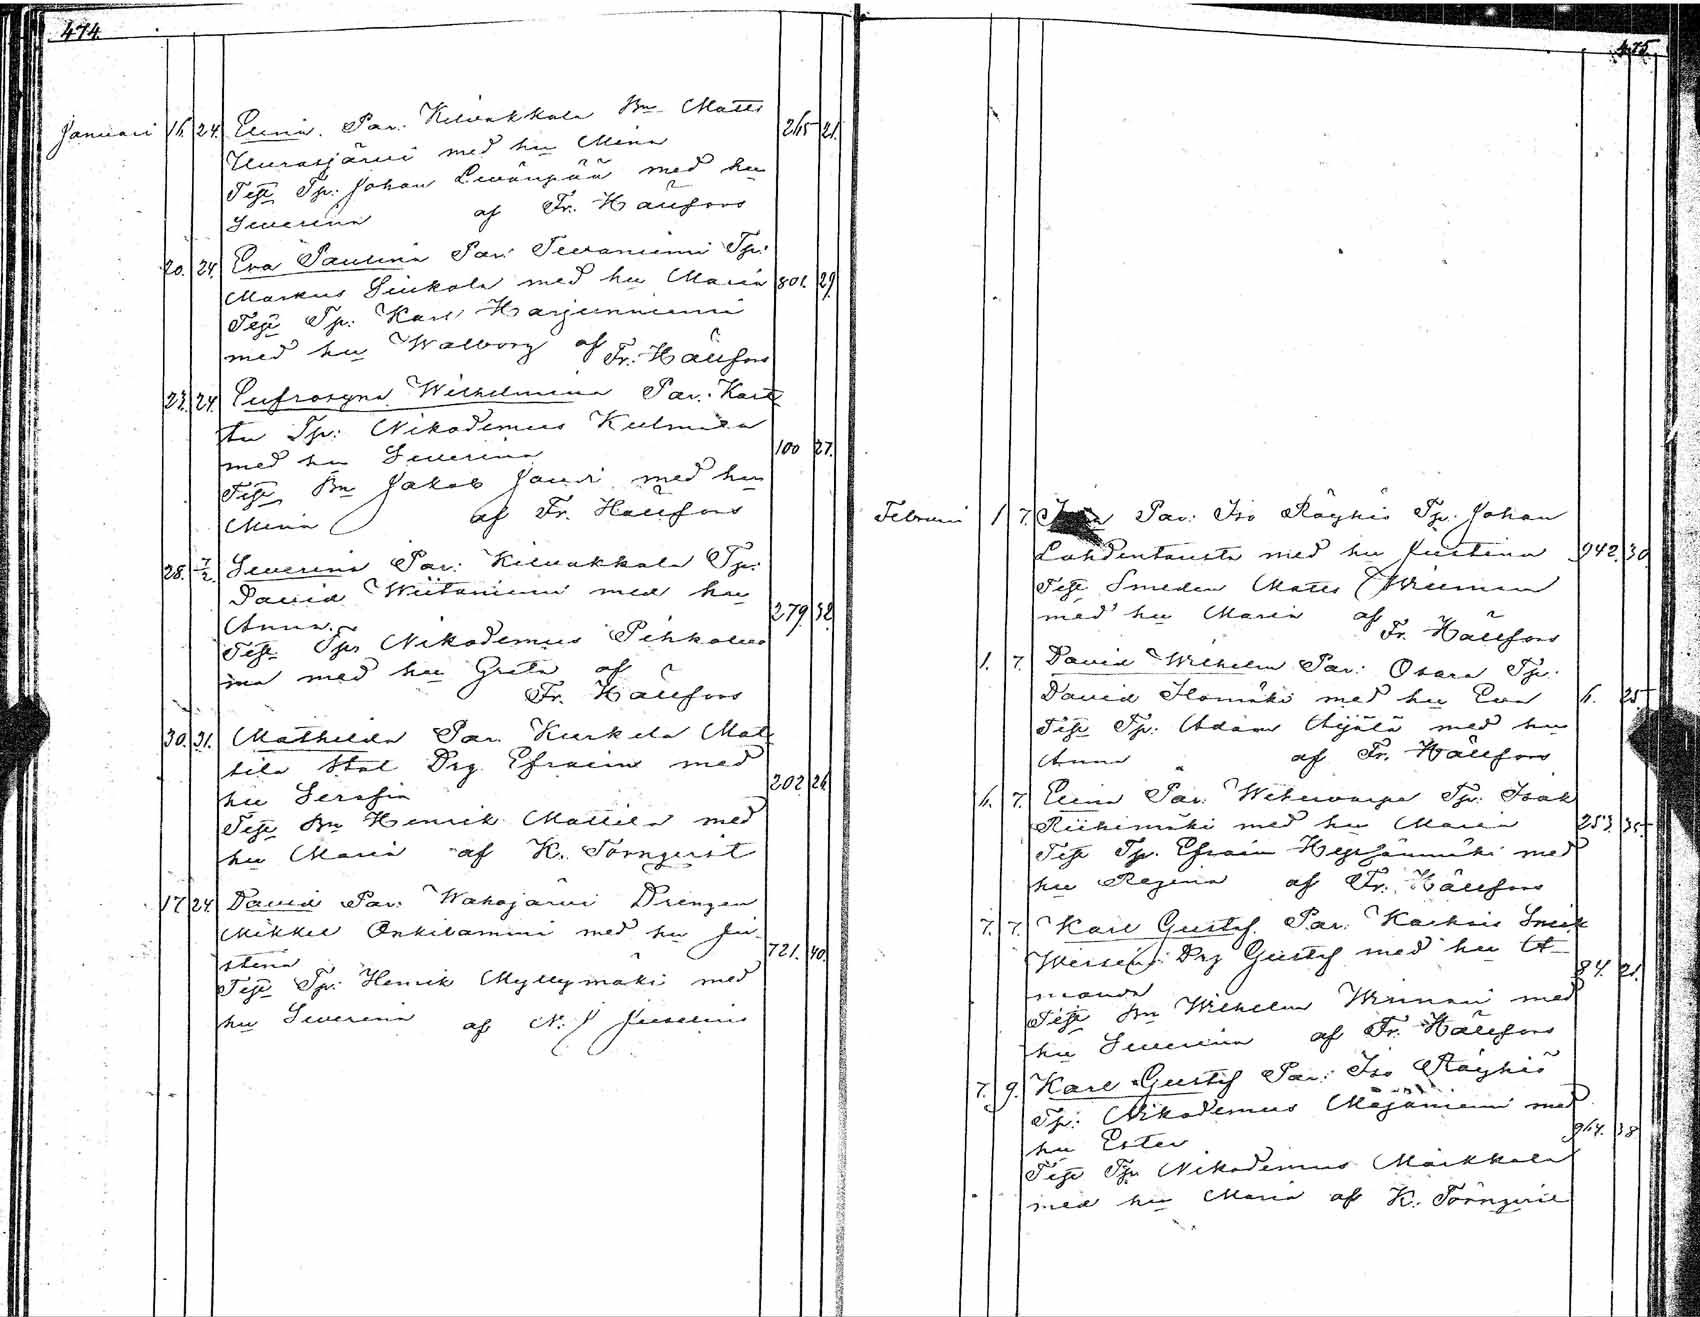 474
Januari 16. 24. Elina. Par: Kilvakkala Bn Matts 265 21.
Uurasjärvi med hu Mina
Test Tp: Johan Levänpää med hu
Severina af Fr. Hällfors
20. 24. Eva Paulina Par: Tevaniemi Tp:
Markus Siukola med hu Maria 801. 29.
Test Tp: Karl Harjunniemi
med hu Walborg af Fr: Hällfors
23. 24. Eufrosyna Wilhelmina Par: Kart
tu Tp: Nikodemus Kulmala
med hu Severina 100 27.
Test Bn Jakob Jaur med hu
Mina af Fr. Hällfors
28. 7/2. Severina Par: Kilvakkala Tp:
David Wiitaniemi med hu 279. 32.
Anna.
Test Tp: Nikodemus Pihkaluo
ma med hu Greta af
Fr. Hällfors
30. 31. Mathilda Par. Kurkela Mat
tila Stal Drg. Efraim med
hu Serafia 202. 26.
Test Bn Henrik Mattila med
hu Maria af K. Törnqvist
17 24. David Par: Wahojärvi Drengen
Mikkel Onkilammi med hu Ju-
stina 721. 40.
Test Tp: Henrik Myllymäki med
hu Severina af N. J. Juselius
475.
Februari 1 7. Par: Iso Röyhiö Tp: Johan
Lahdentausta med hu Justina 942. 30
Test Smeden Matts Wiiman
med hu Maria af Fr. Hällfors
1. 7. David Wilhelm Par: Osara Tp:
David Ilomäki med hu Eva 6. 25
Test Tp: Adam Äijälä med hu
Anna af Fr. Hällfors
6. 7. Elina Par: Wehuvarpe Tp: Isak
Riihimäki med hu Maria 253. 35.
Test Tp. Efraim med
hu Regina af Fr: Hällfors
7. 7. Karl Gustaf. Par: Kaskis
Drg Gustaf med hu A-
manda 84. 21.
Test Bn Wilhelm med
hu Severina af Fr. Hällfors
7. 9. Karl Gustaf Par: Iso Röyhiö
Tp: Nikodemus Mäjäniemi med
hu Ester 964. 38
Test Tp Nikodemus Markkala
med hu Maria af K: Törnqvist